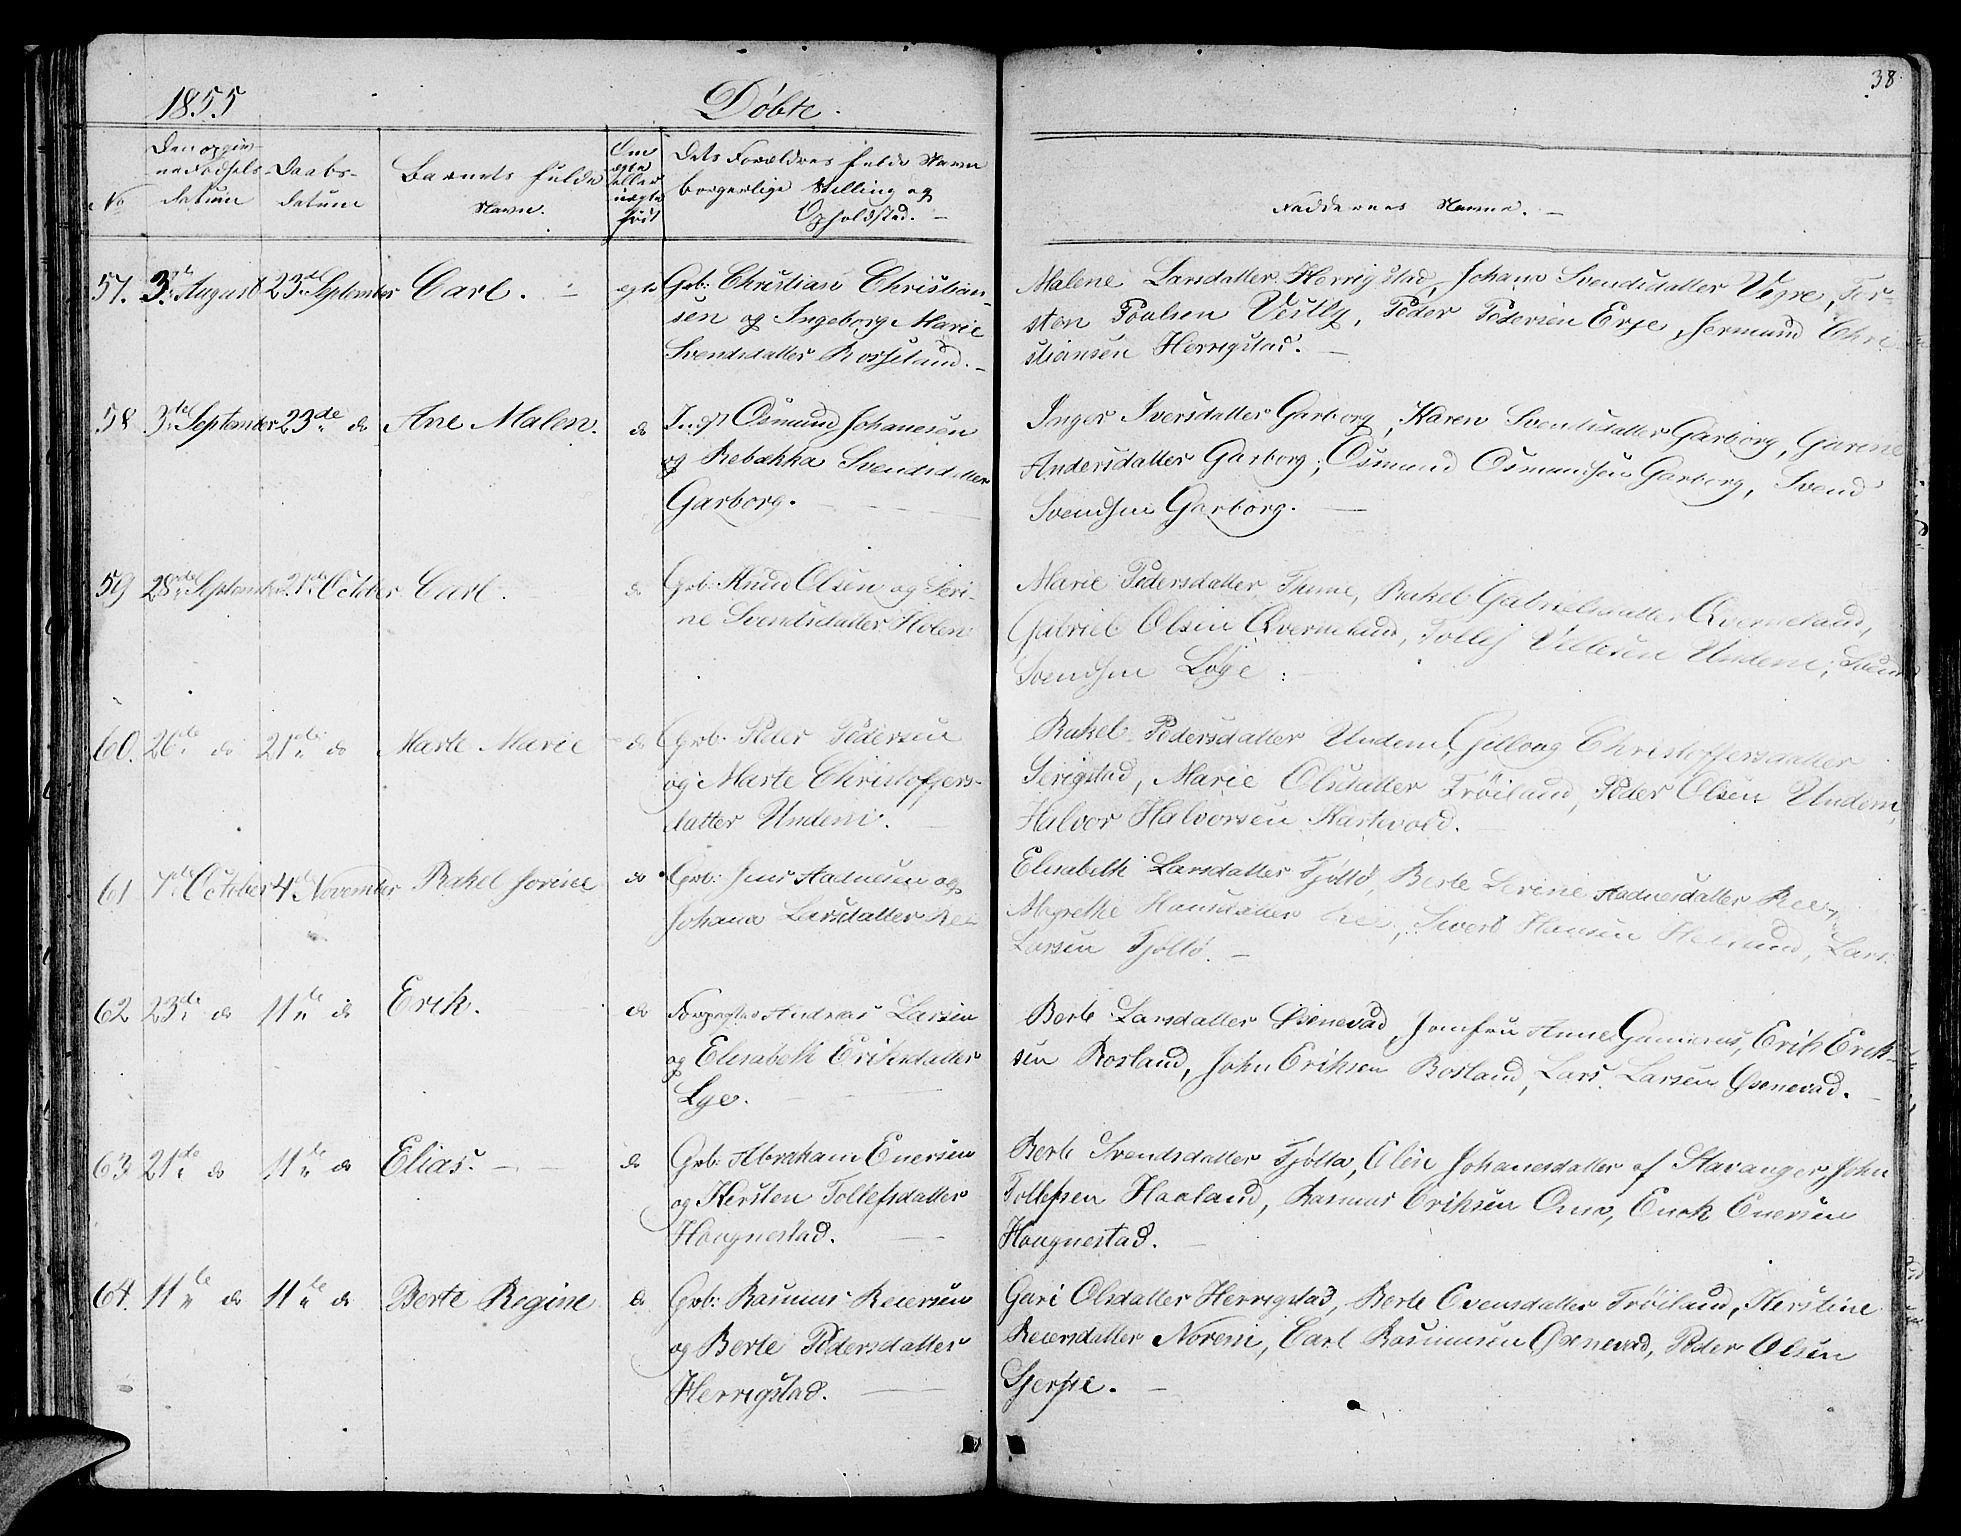 38
1855
Døbte.
No
Den opgivne Fødsels-datum
Daabs-datum
Barnets fulde Navn.
Om ægte eller uægte født
Dets Forældres fulde Navn
borgerlige Stilling og
Opholdsted. —
Faddernes Navne. —
57. 3die August 23de September Carl. — egte Grb: Christian Christian-
sen og Ingeborg Marie
Svendsdatter Rosseland. —
Malene Larsdatter Herrigstad, Johane Svendsdatter Tor-
sten Poulsen Peder Pedersen Erge, Chri-
stiansen Herrigstad. —
58 3die September 23de do Ane Malen. do Inds Osmund Johanesen
og Rebakka Svendsdatter
Garborg. —
Inger Iversdatter Garborg, Karen Svendsdatter Garborg, Gurene
Andersdatter Garborg, Osmund Osmundsen Garborg, Svend
Svendsen Garborg. —
59 28de September 21de October Carl. do Grb: Knud Olsen og Seri-
ne Svendsdatter Holen
Marie Pedersdatter Thime, Rakel Gabrielsdatter Qverneland,
Gabriel Olsen Qvernelund, Tollef Villesen Undem, Svend
Svendsen Lyge. —
60. 26de do 21de do Marte Marie do Grb: Peder Pedersen
og Marte Christoffers-
datter Undem. —
Rakel Pedersdatter Undem, Gjillaug Christoffersdatter
Serigstad, Marie Olsdatter Trøiland, Peder Olsen Undem,
Halvor Halvorsen Kartevold. —
61 7de October 4de November Rakel Jorine do Grb: Jens Aadnesen og
Johana Larsdatter Ree
Elisabeth Larsdatter Tjøtto, Berte Serine Aadnesdatter Ree,
Megrethe Hansdatter Ree, Siverd Hansen Helland, Lars
Larsen Tjøtto. —
62 23de do 11te do Erik. do Forpagter Andreas Larsen
og Elisabeth Eriksdatter
Lye. —
Berte Larsdatter Øxnevad, Jomfru Anne Gunnerus, Erik Erik-
sen Rosland, John Eriksen Rosland, Lars Larsen Øxnevad. —
63 21de do 11te do Elias. — do Grb: Abraham Enersen
og Kirsten Tollefsdatter
Hougnestad. —
Berte Svendsdatter Tjøtta, Oline Johanesdatter af Stavanger, John
Tollefsen Haaland, Rasmus Eriksen Omo, Enok Enersen
Hougnestad. —
64. 11te do 11te do Berte Regine do Grb: Rasmus Reiersen
og Berte Pedersdatter
Herrigstad. —
Guri Olsdatter Herrigstad, Berte Evensdatter Trøiland, Kirstine
Reiersdatter Norem, Carl Rasmusen Øxnevad, Peder Olsen
Sjerpe. —